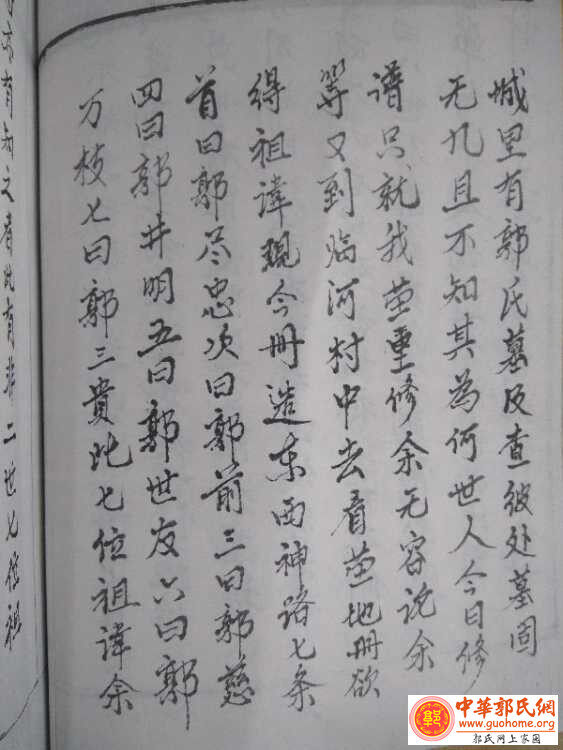 城里有郭氏墓及查彼处墓固
无凡且不知其为何世人今日修
谱只就我茔重修余无容说余
等又到临河村中去看茔地册欲
得祖諱現今冊造东西神路七条
首曰郭尽忠次曰郭前三曰郭慈
四曰郭井明五曰郭世友六曰郭
万枝七曰郭三貴此七位祖諱余
亦有知之者此有非二世七位祖
中華郭氏網
www.guohome.org
郭氏网上家园